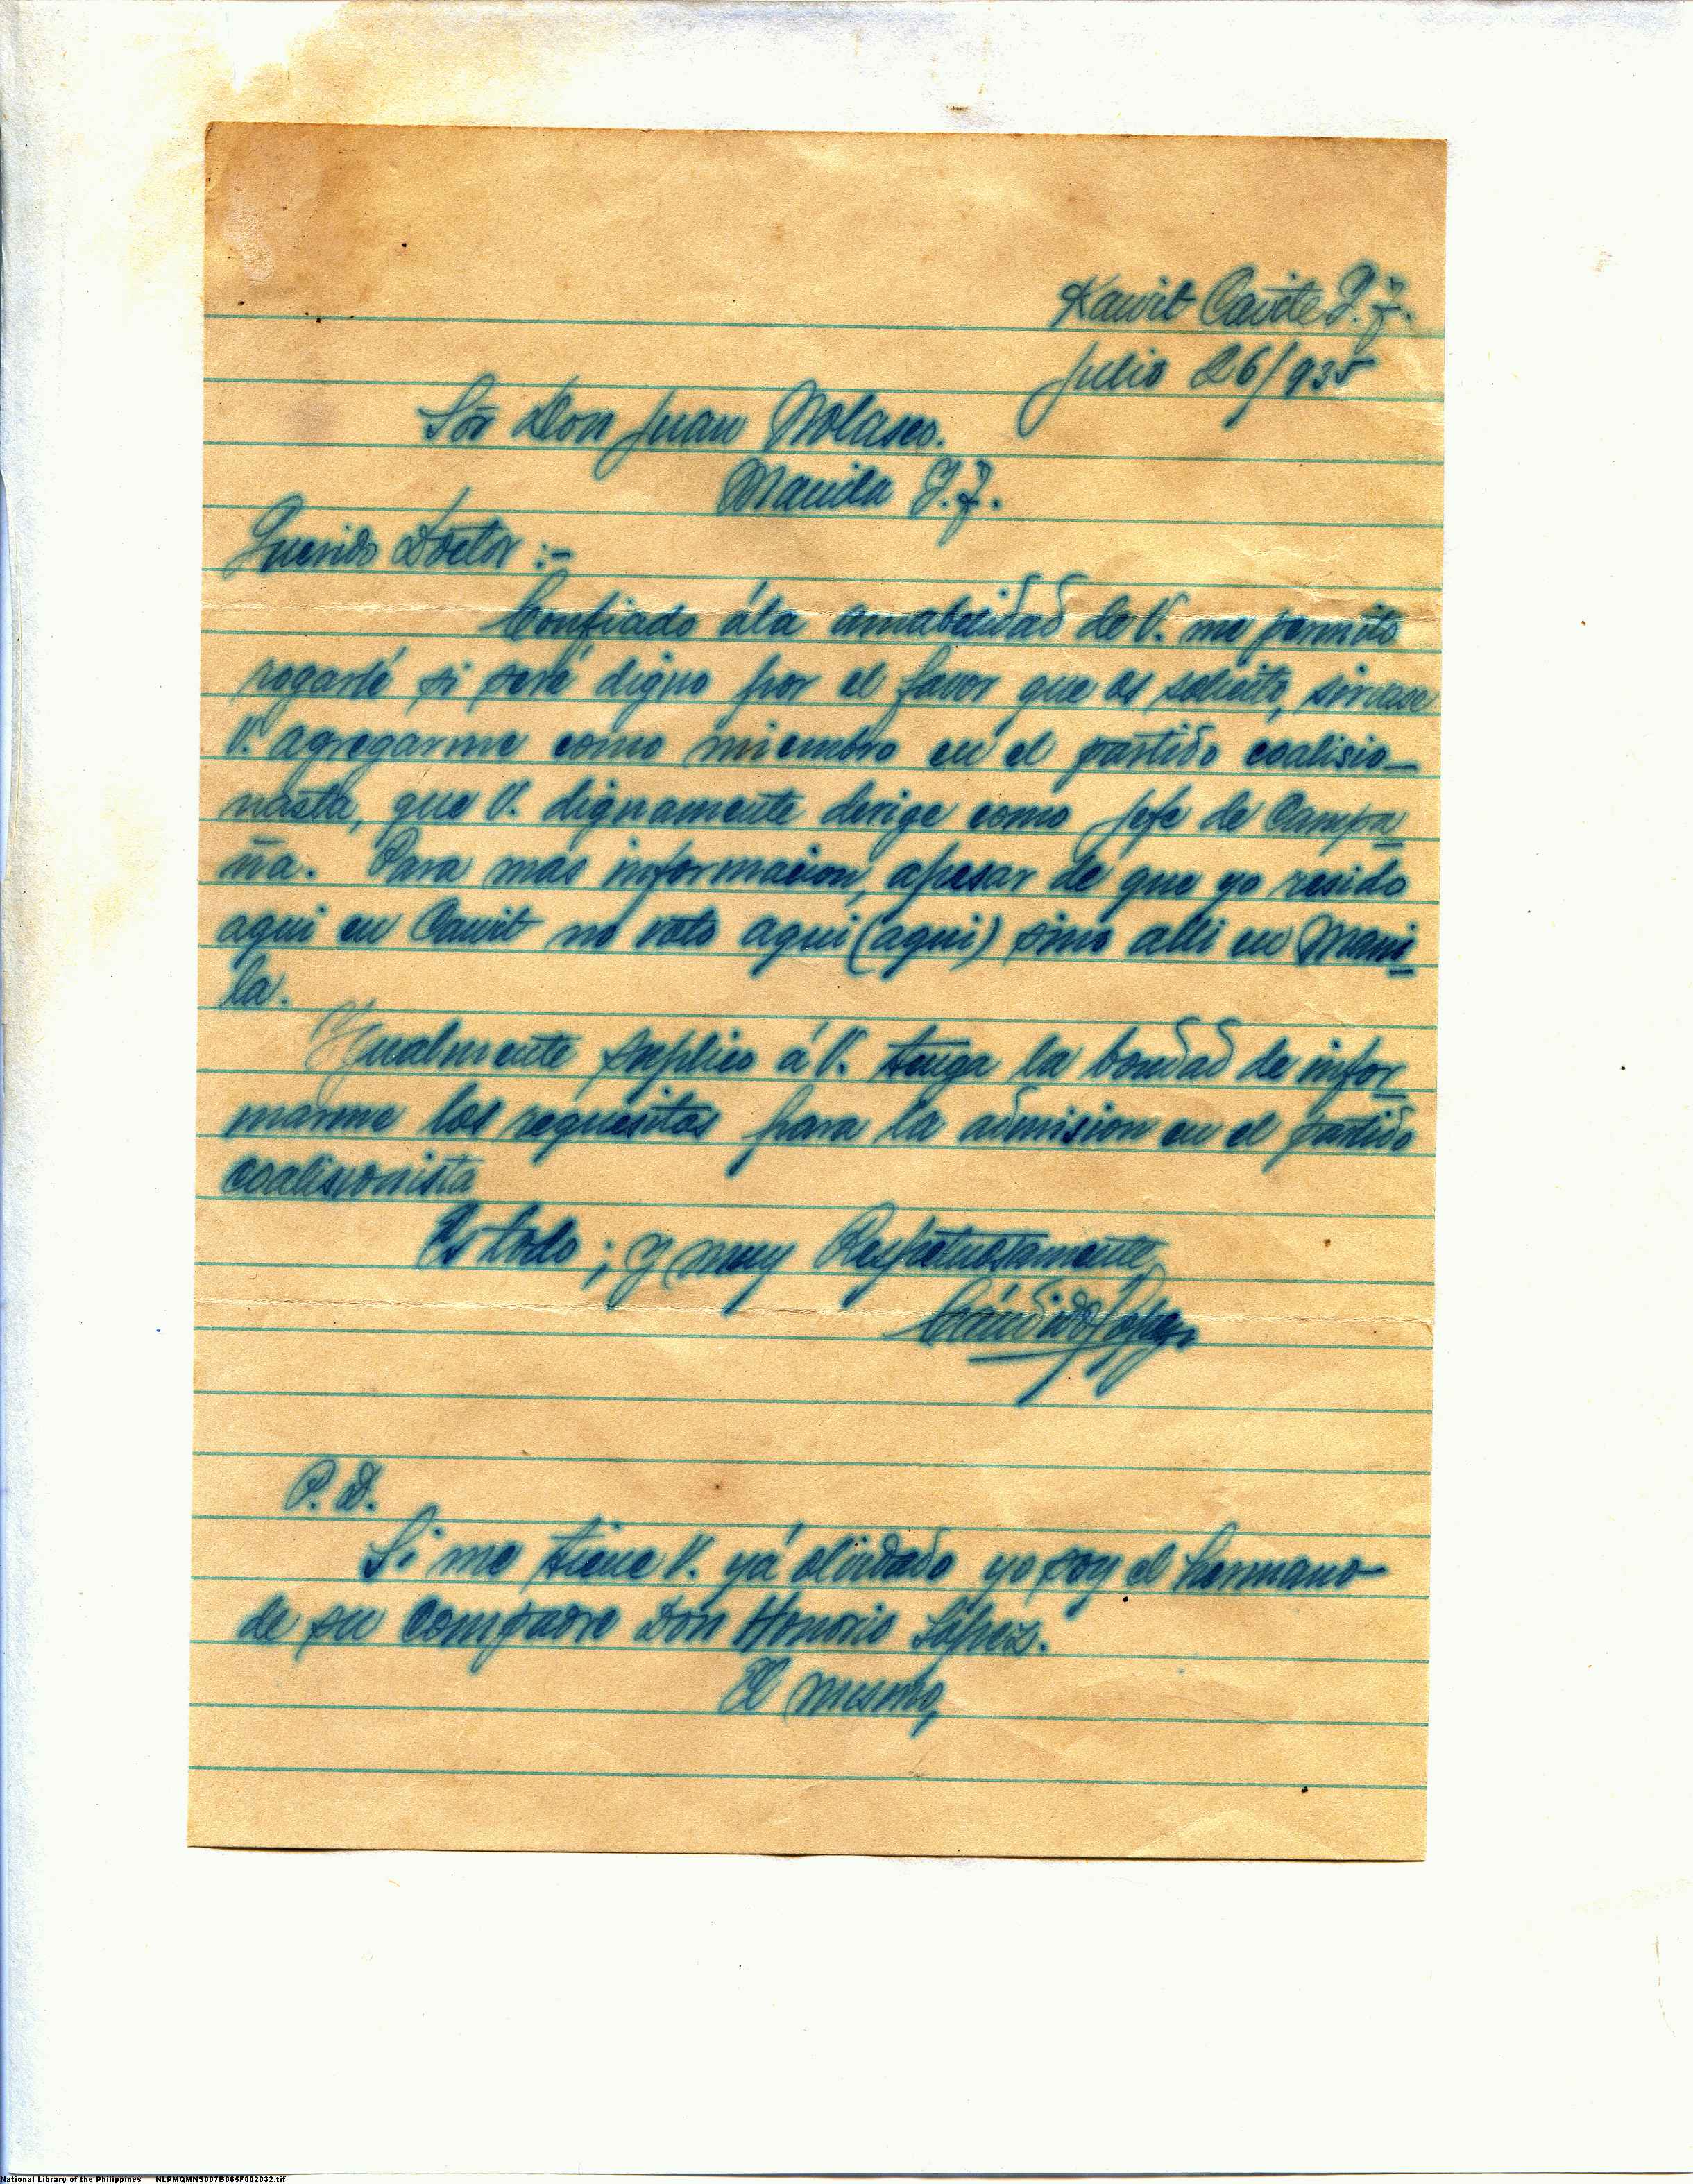 Kawit Cavite I. F.
Julio 26/935
Sor Don Juan Nolasco.
Manila I. F.
Querido Doctor :-
Confiado á la amabelidad de V. me permito
rogarlé si seré digno por el favor que os soleito, sirvase
V. agregarme como miembro en el partido coalisio-
nasta, que V. dignamente dirige como jefe de Campa-
ña. Para mas informacion, apesar de que yo resido
aqui en Cawit no voto aqui (aqui) sino alli en Mani-
la.
Ygualmente suplico á V. tenga la bondad de infor-
marme los requesitos para la admision en el partido
coalisionista
Es todo ; y muy Respetuosamente
Cándido López
P. D.
Si me tiene V. yá olvidado yo soy el hermano
de su compadre Don Honorio López.
El mismo,
National Library of the Philippines NLPMQMNS007B066F002032.tif